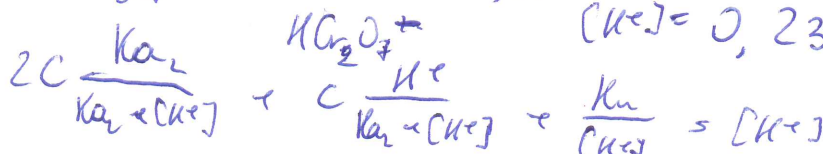 HCr2O7^- [H+] = 0,23
2C Ka2 / (Ka2 + [H+]) + C H+ / (Ka2 + [H+]) + Kw / [H+] = [H+]